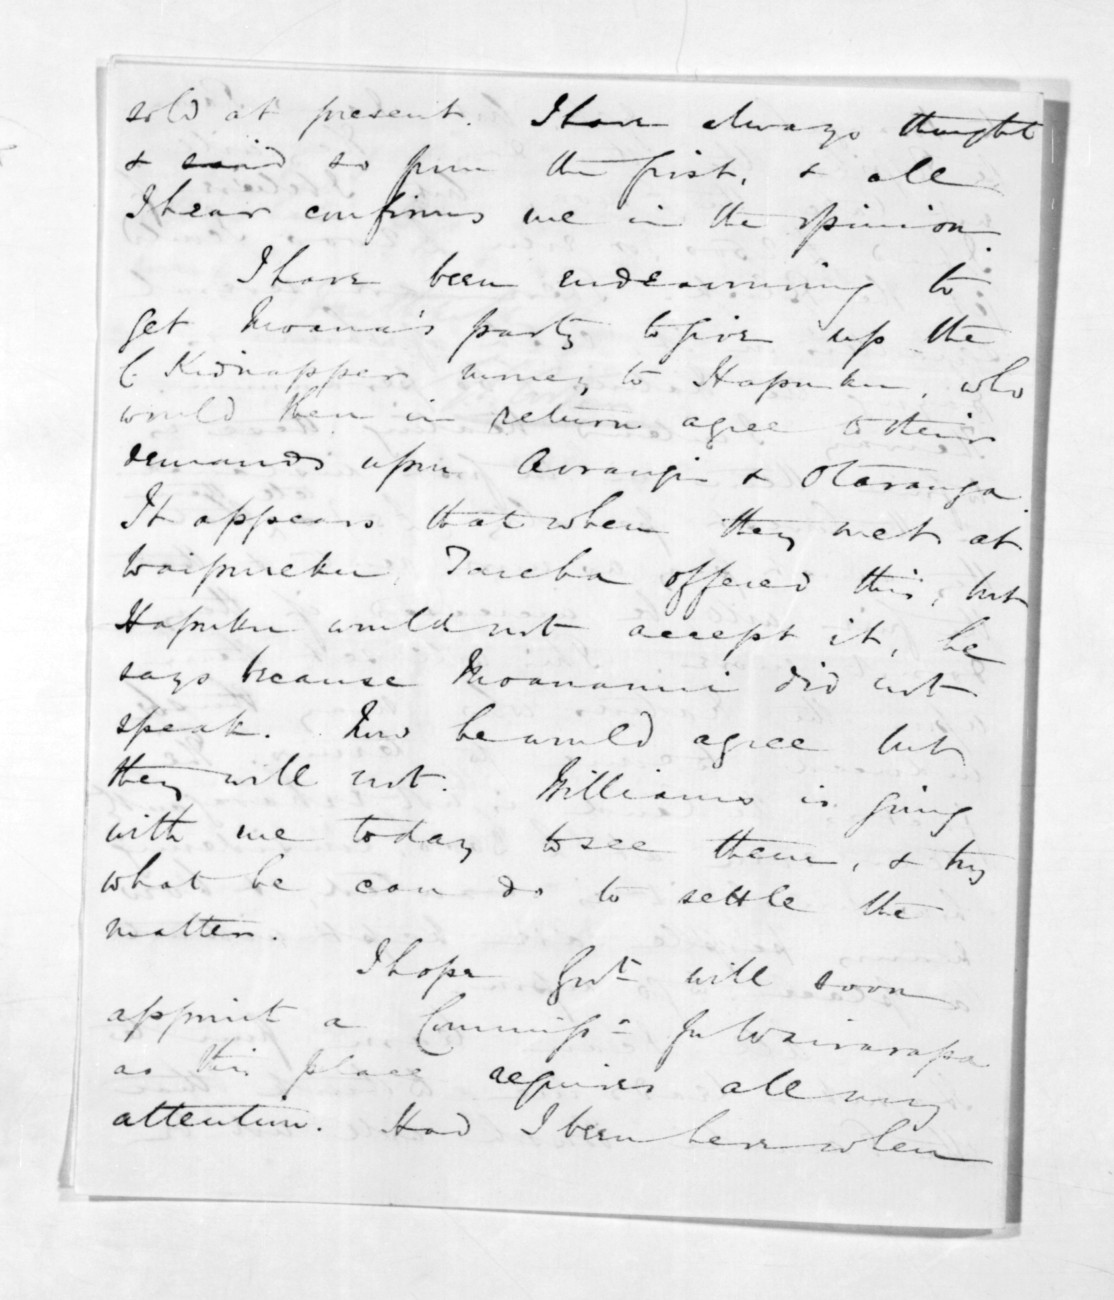 sold at present. I have always thought
& said so from the first, & all
I hear confirms me in the opinion.
I have been endeavouring to
get Moana's party to give up the
C Kidnapper money to Hapuku, who
would then in return agree to their
demands upon Aorangi & Otaranga.
It appears that when they met at
Waipureku, Tareha offered this, but
Hapuku would not accept it, he
says because Moananui did not
speak. Now he would agree but
they will not. Williams is going
with me today to see them, & try
what he can do to settle the
matter.
I hope Govt will soon
appoint a Commissr for Wairarapa
as this place requires all my
attention. Had I been here when